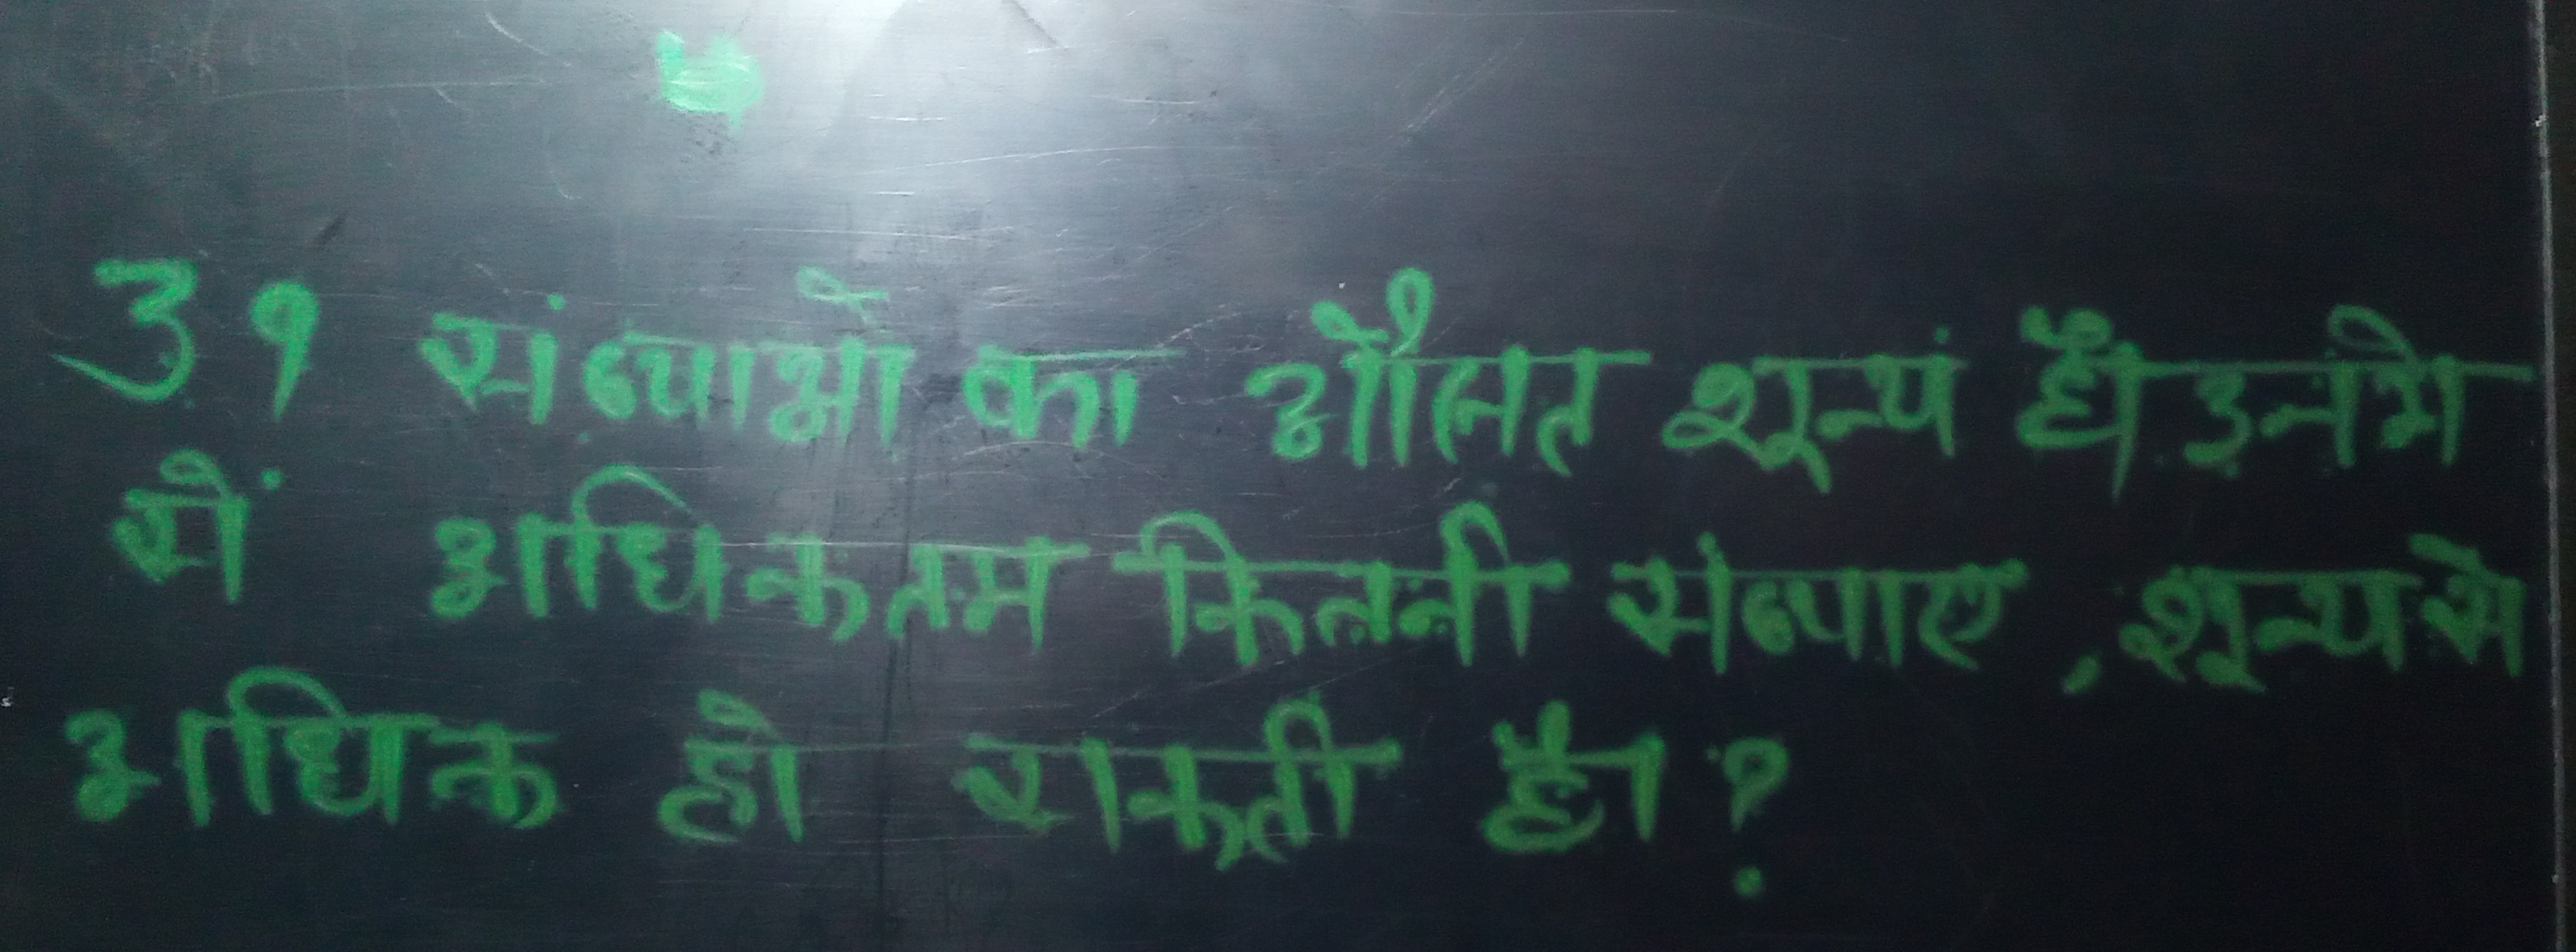 ३१ संख्याओं का औसत शून्य है उनमे
से अधिकतम कितनी संख्याए, शून्य से
अधिक हो सकती है ?